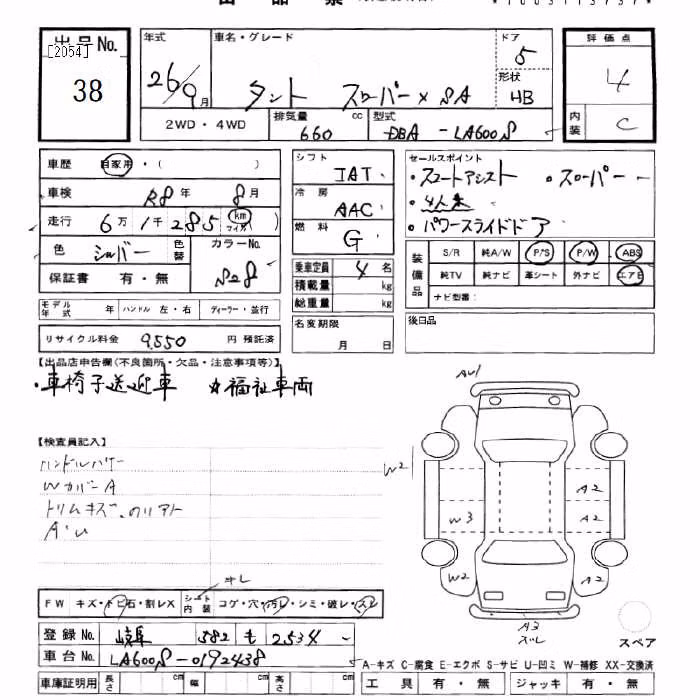 出品票
*1003113737*
出品No. 年式 車名・グレード ドア 評価点
[2054]
38 26/9月 タント スローパー×SA 5 4
形状 HB
2WD・4WD 排気量 660 cc 型式 DBA - LA600S 内装 C
車歴 自家用・( ) シフト IAT セールスポイント
車検 R8年 8月 冷房 AAC ・スマートアシスト ・スローパー
・4人乗
走行 6万1千285 km マイル 燃料 G ・パワースライドドア
色 シルバー 色替 カラーNo. S28
乗車定員 4名 装備品 S/R 純A/W P/S P/W ABS
保証書 有・無 積載量 kg 純TV 純ナビ 革シート 外ナビ エアB
総重量 kg ナビ型番:
モデル年式 年 ハンドル 左・右 ディーラー・並行
リサイクル料金 9,550 円 預託済 名変期限 月 日 後日品
【出品店申告欄(不良箇所・欠品・注意事項等)】
・車椅子送迎車 ☆福祉車両
AU1
【検査員記入】
ハンドルハゲー
WカバーA
トリムキズ、のリアト
A'U
W2
A2
W3 A2
W2 A2
A3
スレ
キレ
FW キズ・トビ石・割レX シート内装 コゲ・穴・汚レ・シミ・破レ・スレ
登録No. 岐阜 582 も 2534
スペア
車台No. LA600S-0192438
A-キズ C-腐食 E-エクボ S-サビ U-凹ミ W-補修 XX-交換済
車庫証明用 長さ cm 幅 cm 高さ cm 工具 有・無 ジャッキ 有・無